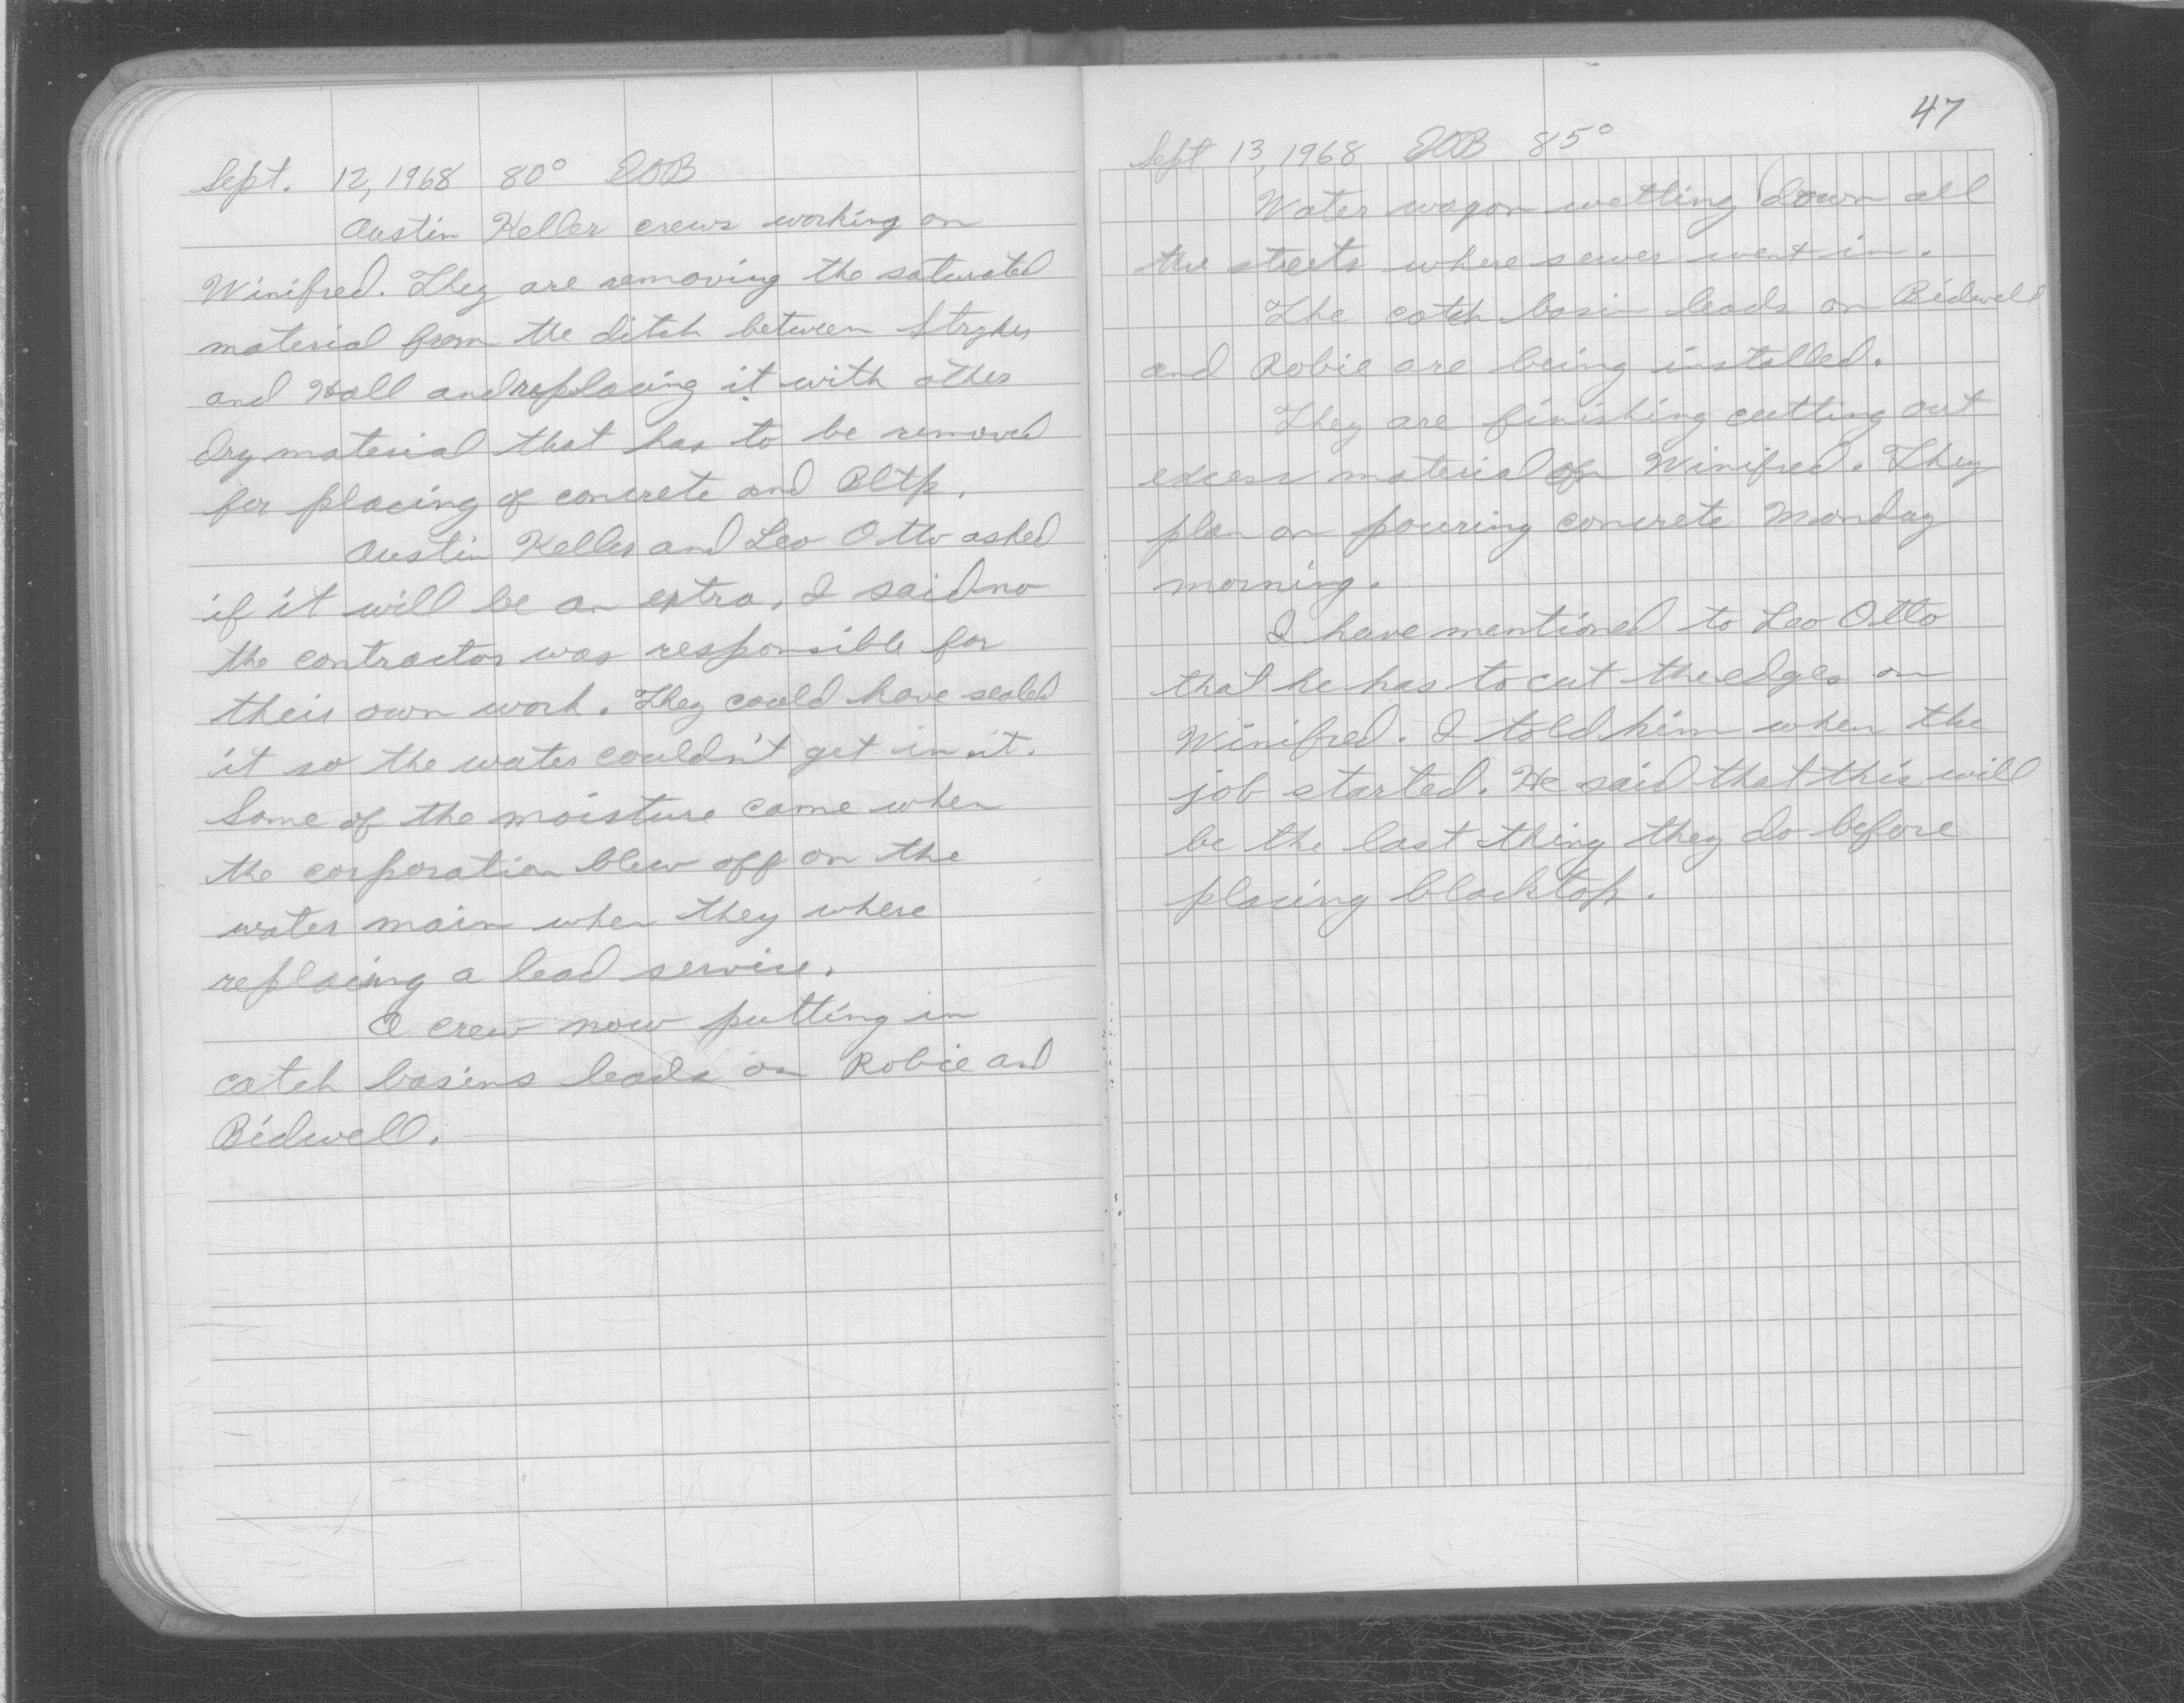 Sept. 12, 1968 80° EOB
Austin Keller crews working on
Winifred. They are removing the saturated
material from the ditch between Stryker
and Hall and replacing it with other
dry material that has to be removed
for placing of concrete and Bltp.
Austin Keller and Leo Otto asked
if it will be an extra, I said no
the contractor was responsible for
their own work. They could have sealed
it so the water couldn't get in it.
Some of the moisture came when
the corporation blew off on the
water main when they where
replacing a lead service.
A crew now putting in
catch basins leads on Robie and
Bidwell.
47
Sept 13, 1968 EOB 85°
Water wagon wetting down all
the streets where sewer went in.
The catch basin leads on Bidwell
and Robie are being installed.
They are finishing cutting out
excess material on Winifred. They
plan on pouring concrete Monday
morning.
I have mentioned to Leo Otto
that he has to cut the edges on
Winifred. I told him when the
job started. He said that this will
be the last thing they do before
placing blacktop.